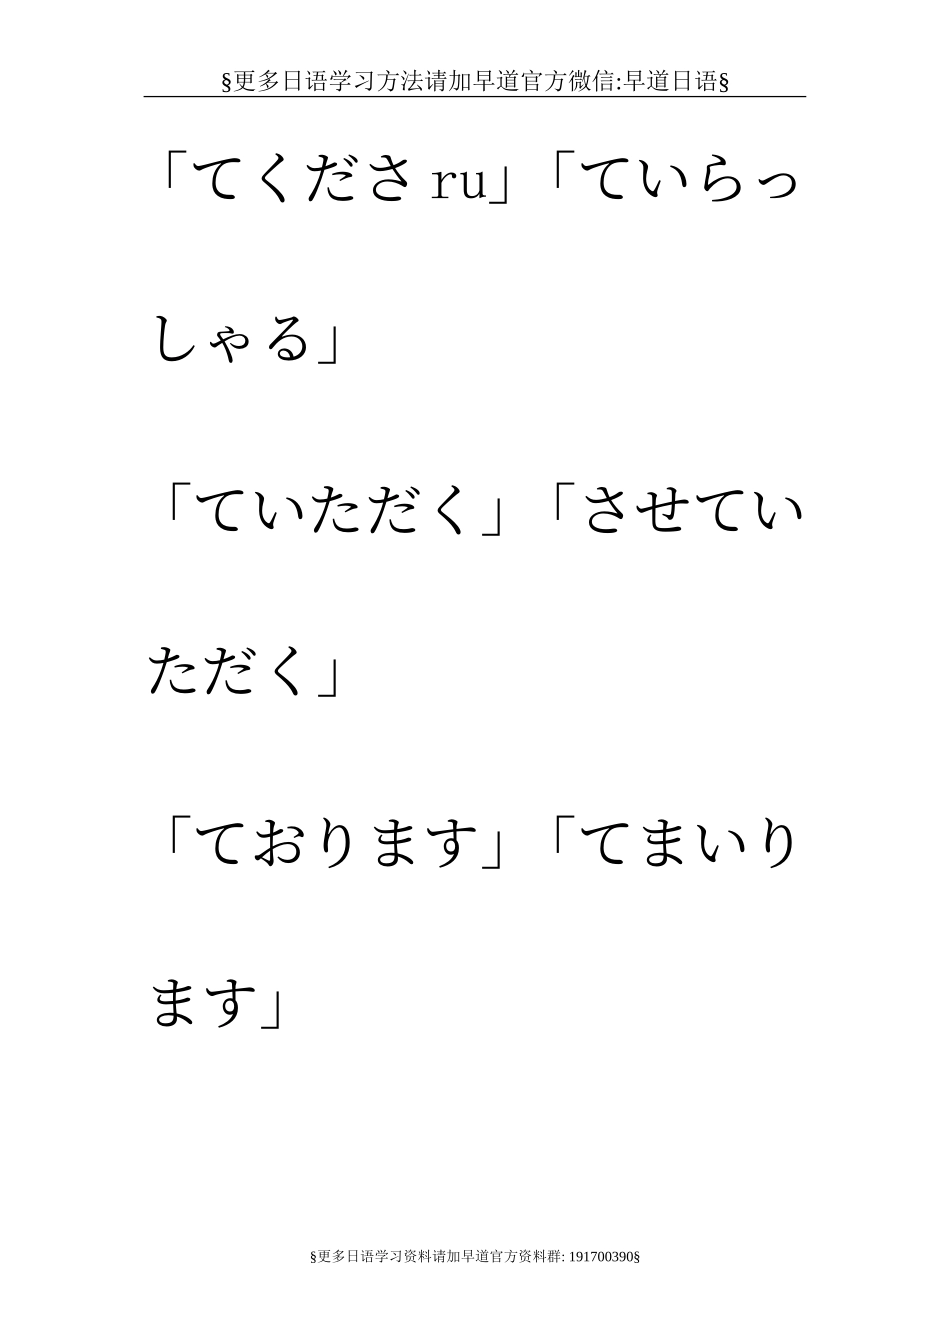 §更多日语学习方法请加早道官方微信:早道日语§
「てくださ ru」「ていらっ
しゃる」
「ていただく」「させてい
ただく」
「ております」「てまいり
ます」
§更多日语学习资料请加早道官方资料群: 191700390§